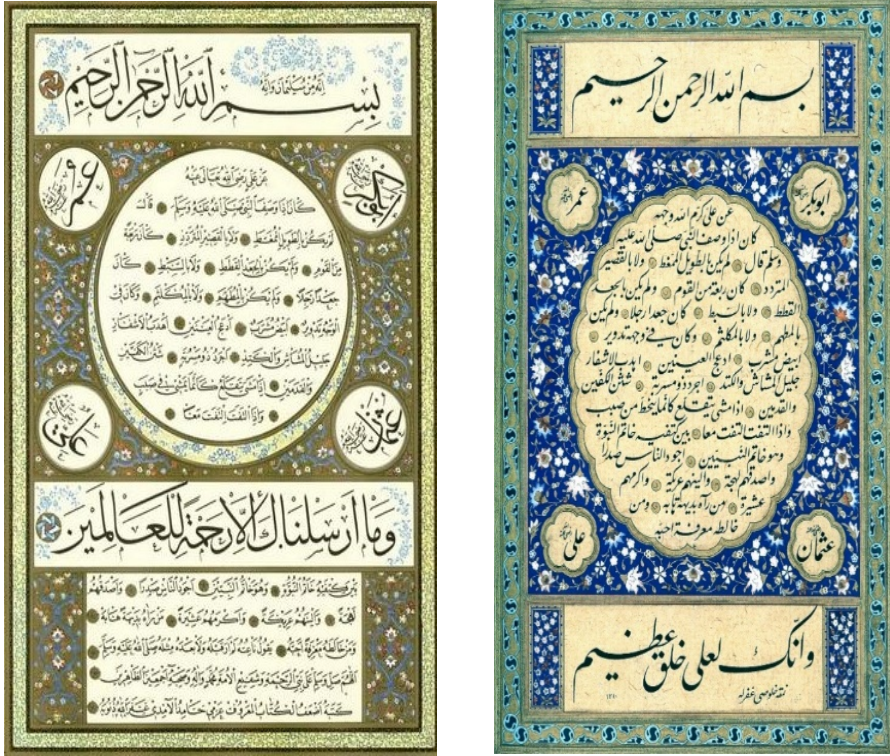 إِنَّهُ مِنْ سُلَيْمَانَ وَإِنَّهُ
بِسْمِ اللّٰهِ الرَّحْمٰنِ الرَّحِيمِ
عمر
عَنْ عَلِيٍّ رَضِيَ اللّٰهُ تَعَالٰى عَنْهُ
كَانَ إِذَا وَصَفَ النَّبِيَّ صَلَّى اللّٰهُ عَلَيْهِ وَسَلَّمَ قَالَ
لَمْ يَكُنْ بِالطَّوِيلِ الْمُمَّغِطِ وَلَا بِالْقَصِيرِ الْمُتَرَدِّدِ كَانَ رَبْعَةً
مِنَ الْقَوْمِ وَلَمْ يَكُنْ بِالْجَعْدِ الْقَطَطِ وَلَا بِالسَّبِطِ كَانَ
جَعْدًا رَجِلًا وَلَمْ يَكُنْ بِالْمُطَهَّمِ وَلَا بِالْمُكَلْثَمِ وَكَانَ فِي
الْوَجْهِ تَدْوِيرٌ أَبْيَضُ مُشْرَبٌ أَدْعَجُ الْعَيْنَيْنِ أَهْدَبُ الْأَشْفَارِ
جَلِيلُ الْمُشَاشِ وَالْكَتَدِ أَجْرَدُ ذُو مَسْرُبَةٍ شَثْنُ الْكَفَّيْنِ
وَالْقَدَمَيْنِ إِذَا مَشٰى يَتَقَلَّعُ كَأَنَّمَا يَمْشِي فِي صَبَبٍ
وَإِذَا الْتَفَتَ الْتَفَتَ مَعًا
عثمان
علي
وَمَا أَرْسَلْنَاكَ إِلَّا رَحْمَةً لِلْعَالَمِينَ
بَيْنَ كَتِفَيْهِ خَاتَمُ النُّبُوَّةِ وَهُوَ خَاتَمُ النَّبِيِّينَ أَجْوَدُ النَّاسِ صَدْرًا وَأَصْدَقُهُمْ
لَهْجَةً وَأَلْيَنُهُمْ عَرِيكَةً وَأَكْرَمُهُمْ عَشِيرَةً مَنْ رَآهُ بَدِيهَةً هَابَهُ
وَمَنْ خَالَطَهُ مَعْرِفَةً أَحَبَّهُ يَقُولُ نَاعِتُهُ لَمْ أَرَ قَبْلَهُ وَلَا بَعْدَهُ مِثْلَهُ صَلَّى اللّٰهُ عَلَيْهِ وَسَلَّمَ
اللّٰهُمَّ صَلِّ وَسَلِّمْ عَلٰى نَبِيِّ الرَّحْمَةِ وَشَفِيعِ الْأُمَّةِ مُحَمَّدٍ وَآلِهِ وَصَحْبِهِ أَجْمَعِينَ الطَّاهِرِينَ
كَتَبَهُ أَضْعَفُ الْكُتَّابِ الْمَعْرُوفُ حَامِدُ الْآمِدِي غَفَرَ اللّٰهُ ذُنُوبَهُ
بسم الله الرحمن الرحيم
ابوبكر
عمر
عن علي كرم الله وجهه
كان اذا وصف النبي صلى الله عليه
وسلم قال لم يكن بالطويل الممغط ولا بالقصير
المتردد كان ربعة من القوم ولم يكن بالجعد
القطط ولا بالسبط كان جعدا رجلا ولم يكن
بالمطهم ولا بالمكلثم وكان في وجهه تدوير
ابيض مشرب ادعج العينين اهدب الاشفار
جليل المشاش والكتد اجرد ذو مسربة شثن الكفين
والقدمين اذا مشى يتقلع كانما ينحط من صبب
واذا التفت التفت معا بين كتفيه خاتم النبوة
وهو خاتم النبيين اجود الناس صدرا
واصدقهم لهجة والينهم عريكة واكرمهم
عشيرة من رآه بديهة هابه ومن
خالطه معرفة احبه
عثمان
علي
وانك لعلى خلق عظيم
نمقه خلوصي غفرله